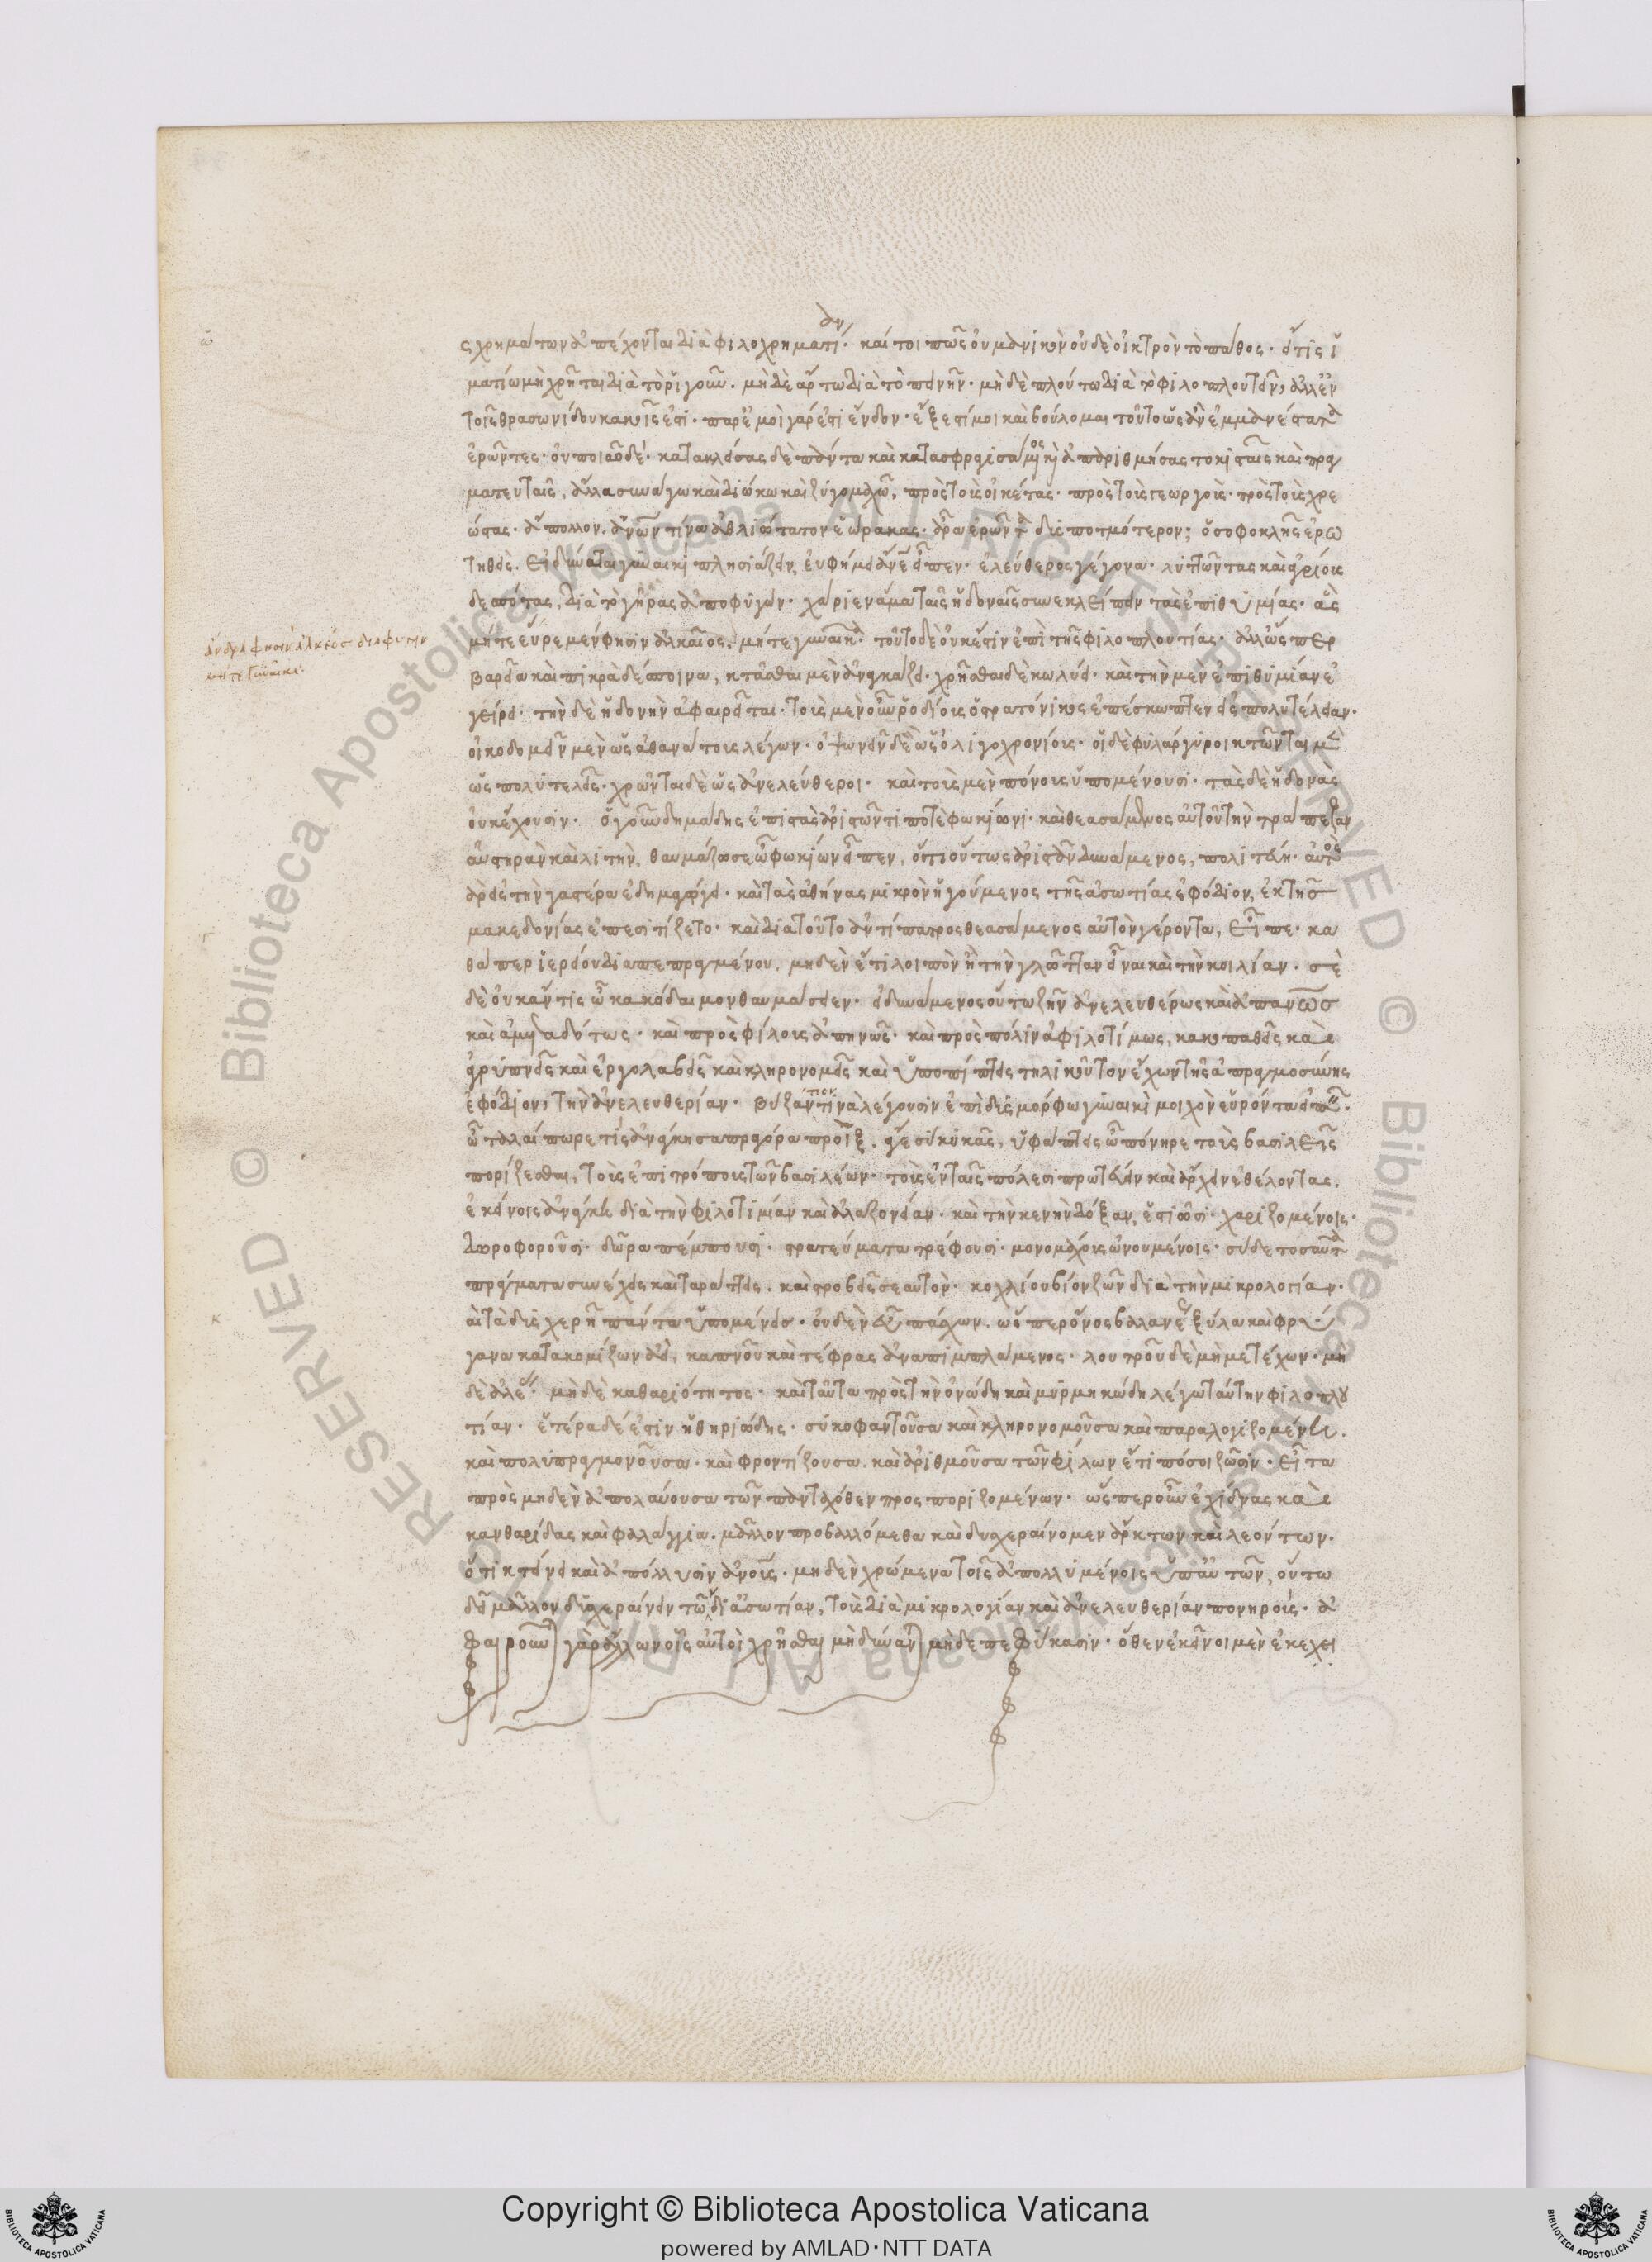 ς χρημάτων ἀπέχονται διὰ φιλοχρηματίαν· καίτοι πῶς οὐ μανικὸν οὐδὲ οἰκτρὸν τὸ πάθος· εἴτις ἱ
ματίω μὴ χρῆται διὰ τὸ ῥιγοῦν. μηδὲ ἄρτω διὰ τὸ πεινῆν· μηδὲ πλούτω διὰ τὸ φιλοπλουτεῖν, ἀλλ' ἐν
τοῖς θρασωνίδου κακοῖς ἐστί· παρ' ἐμοὶ γάρ ἐστι ἔνδον· ἔξεστί μοι καὶ βούλομαι τοῦτο ὡς ἂν ἐμμανέστατα
ἐρῶντες· οὐ ποιῶ δέ· κατακλείσας δὲ πάντα καὶ κατασφραγισάμενος καὶ ἀπαριθμήσας τοκισταῖς καὶ πραγ
ματευταῖς, ἄλλα συνάγω καὶ διώκω καὶ ζυγομαχῶ, πρὸς τοὺς οἰκέτας· πρὸς τοὺς γεωργοὺς· πρὸς τοὺς χρε
ώστας· ἄπολλον. ἀνθρώπων τίνα ἀθλιώτατον ἑώρακας· ἆρα ἐρῶντα δυσποτμότερον; ὁ σοφοκλῆς ἐρω
τηθεὶς. εἰ δύναται γυναικὶ πλησιάζειν, εὐφήμει ἄνθρωπε εἶπεν· ἐλεύθερος γέγονα· λυττῶντας καὶ ἀγρίους
δεσπότας, διὰ τὸ γῆρας ἀποφυγών· χαρίεν ἅμα ταῖς ἡδοναῖς συνεκλείπειν τὰς ἐπιθυμίας· ἃς
μήτε εὗρε μέν φησιν ἀλκαῖος, μήτε γυναικα· τοῦτο δὲ οὐκ ἔστιν ἐπὶ τῆς φιλοπλουτίας· ἀλλ' ὥσπερ
βαρεῖα καὶ πικρὰ δέσποινα, κτᾶσθαι μὲν ἀναγκάζει· χρῆσθαι δὲ κωλύει· καὶ τὴν μὲν ἐπιθυμίαν ἐ
γείρει· τὴν δὲ ἡδονὴν ἀφαιρεῖται· τοὺς μὲν οὖν ῥοδίους ὁ στρατόνικος ἐπέσκωπτεν εἰς πολυτέλειαν·
οἰκοδομεῖν μὲν ὡς ἀθανάτους λέγων· ὀψωνεῖν δὲ ὡς ὀλιγοχρονίους· οἱ δὲ φιλάργυροι κτῶνται μὲν
ὡς πολυτελεῖς· χρῶνται δὲ ὡς ἀνελεύθεροι· καὶ τοὺς μὲν πόνους ὑπομένουσι· τὰς δὲ ἡδονὰς
οὐκ ἔχουσιν· ὁ γοῦν δημάδης ἐπιστὰς ἀριστῶντί ποτε φωκίωνι· καὶ θεασάμενος αὐτοῦ τὴν τράπεζαν
αὐστηρὰν καὶ λιτὴν, θαυμάζω σε ὦ φωκίων εἶπεν, ὅτι οὕτως ἀριστᾶν δυνάμενος, πολιτεύη· αὐτὸς
γὰρ εἰς τὴν γαστέρα ἐδημαγώγει· καὶ τὰς ἀθήνας μικρὸν ἡγούμενος τῆς ἀσωτίας ἐφόδιον, ἐκ τῆς
μακεδονίας ἐπεσιτίζετο· καὶ διὰ τοῦτο ἀντίπατρος θεασάμενος αὐτὸν γέροντα, εἶπε· κα
θάπερ ἱερείου διαπεπραγμένου. μηδὲν ἔτι λοιπὸν ἢ τὴν γλῶτταν εἶναι καὶ τὴν κοιλίαν· σὲ
δὲ οὐκ ἄν τις ὦ κακόδαιμον θαυμάσειεν· εἰ δυνάμενος οὕτω ζῆν ἀνελευθέρως καὶ ἀπανθρώπως
καὶ ἀμεταδότως· καὶ πρὸς φίλους ἀπηνῶς· καὶ πρὸς πόλιν ἀφιλοτίμως, κακοπαθεῖς καὶ
ἀγρυπνεῖς καὶ ἐργολαβεῖς καὶ κληρονομεῖς καὶ ὑποπίπτεις τηλικοῦτον ἔχων τῆς ἀπραγμοσύνης
ἐφόδιον, τὴν ἀνελευθερίαν· βυζάντιόν τινα λέγουσιν ἐπὶ δυσμόρφω γυναικὶ μοιχὸν εὑρόντα εἰπεῖν·
ὦ ταλαίπωρε τίς ἀνάγκη σαπραγόρα προὶξ. ἄγε σὺ κυκᾶς, ὑφάπτεις ὦ πόνηρε τοὺς βασιλεῖς
πορίζεσθαι, τοὺς ἐπιτρόπους τῶν βασιλέων· τοὺς ἐν ταῖς πόλεσι πρωτεύειν καὶ ἄρχειν ἐθέλοντας.
ἐκείνοις ἀνάγκη διὰ τὴν φιλοτιμίαν καὶ ἀλαζονείαν· καὶ τὴν κενὴν δόξαν, ἑστιῶσι· χαριζομένοις·
δωροφοροῦσι· δῶρα πέμπουσι· στρατεύματα τρέφουσι· μονομάχους ὠνουμένοις· σὺ δὲ τοσαῦτα
πράγματα συνέχεις καὶ ταράττεις. καὶ στροβεῖς σεαυτὸν· κοχλίου βίον ζῶν διὰ τὴν μικρολογίαν·
καὶ τὰ δυσχερῆ πάντα ὑπομένεις· οὐδὲν εὖ πάσχων. ὥσπερ ὄνος βαλανέως ξύλα καὶ φρύ
γανα κατακομίζων ἀεί, καπνοῦ καὶ τέφρας ἀναπιμπλάμενος· λουτροῦ δὲ μὴ μετέχων· μη
δὲ ἀλέας· μηδὲ καθαριότητος· καὶ ταῦτα πρὸς τὴν ὀνώδη καὶ μυρμηκώδη λέγω ταύτην φιλοπλου
τίαν· ἑτέρα δέ ἐστιν ἡ θηριώδης· συκοφαντοῦσα καὶ κληρονομοῦσα καὶ παραλογιζομένη.
καὶ πολυπραγμονοῦσα· καὶ φροντίζουσα. καὶ ἀριθμοῦσα τῶν φίλων ἔτι πόσοι ζῶσιν· εἶτα
πρὸς μηδὲν ἀπολαύουσα τῶν πανταχόθεν προσποριζομένων· ὥσπερ οὖν ἐχίδνας καὶ
κανθαρίδας καὶ φαλάγγια. μᾶλλον προβαλλόμεθα καὶ δυσχεραίνομεν ἄρκτων καὶ λεόντων·
ὅτι κτείνει καὶ ἀπόλλυσιν ἀνθρώπους· μηδὲν χρώμενα τοῖς ἀπολλυμένοις ὑπ' αὐτῶν, οὕτω
δεῖ μᾶλλον δυσχεραίνειν τῶν δι' ἀσωτίαν, τοὺς διὰ μικρολογίαν καὶ ἀνελευθερίαν πονηρούς· ἀ
φαιροῦνται γὰρ ἄλλων οἷς αὐτοὶ χρῆσθαι μὴ δύνανται μηδὲ πεφύκασιν· ὅθεν ἐκεῖνοι μὲν ἐκεχει